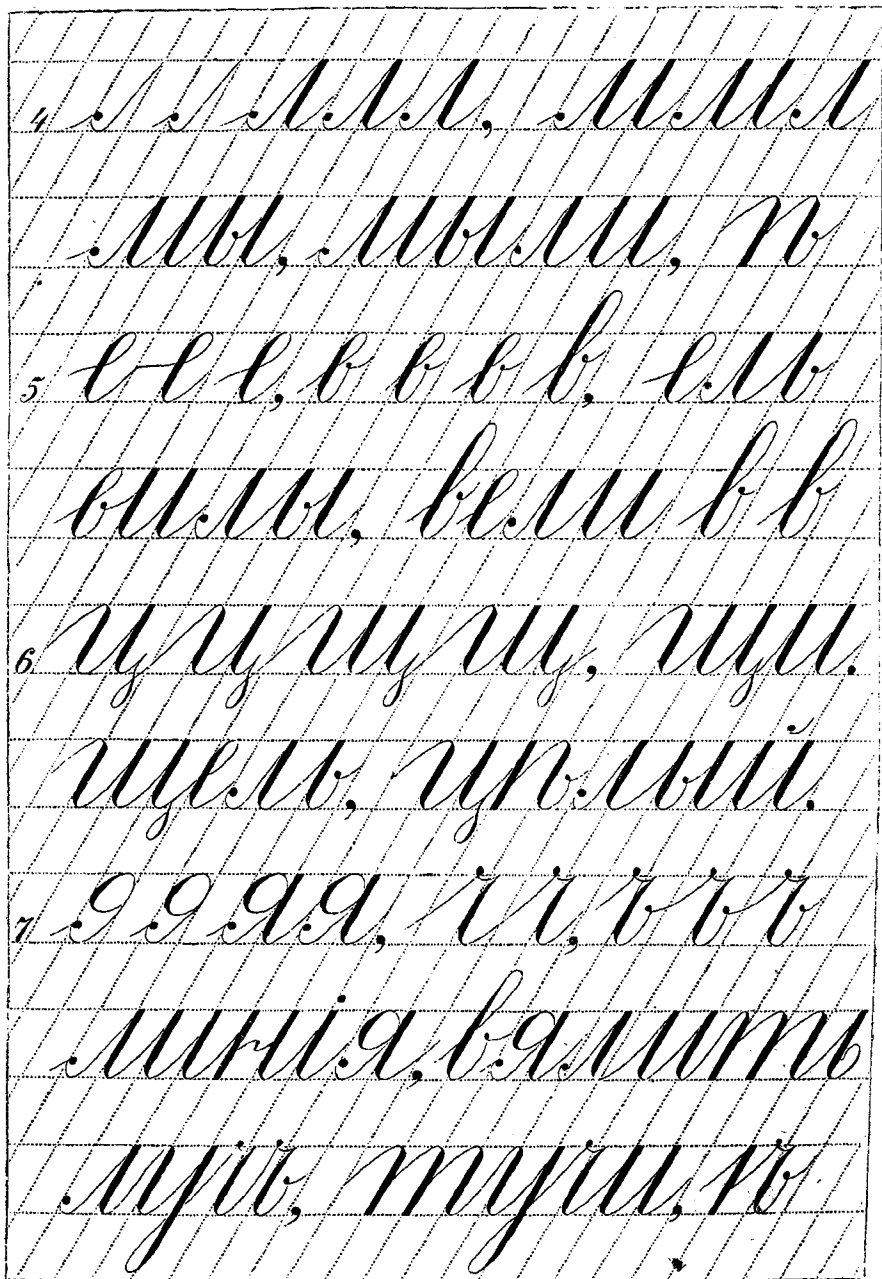 4 л л л л л, м м л
мы, мыли, ѣ
5 е е е, в в в в, ель
вилы, вели в в
6 ц ц щ щ, щи.
щель, цѣлый.
7 я я я я, ч ч, ъ ъ ъ
линія, вялить
лучъ, тучи,